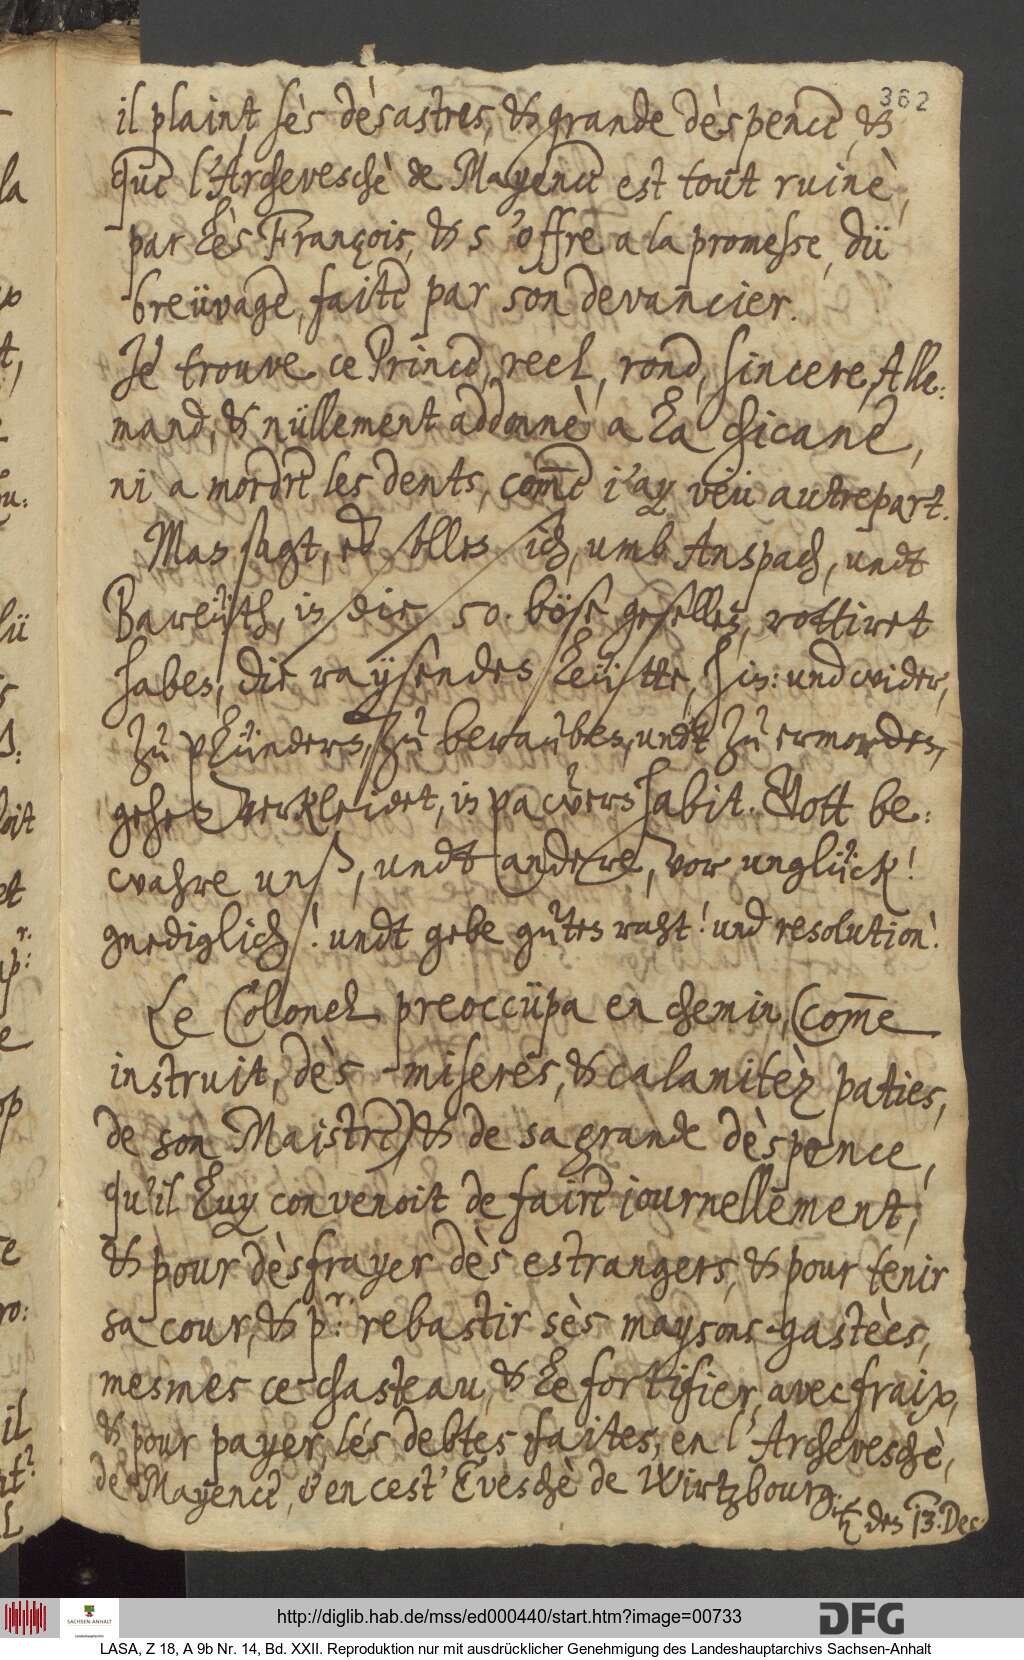 362
il plaint sès dèsastres, & grande dèspence, &
que l'Archeveschè de Mayence est tout ruinè,
par lès François, & s'offre a la promesse, dü
breüvage, faite par son devancier.
Je trouve ce Prince, reel, rond, sincere, Alle:
mand, & nüllement addonnè a la chicane,
ni a mordre les dents, com̄e i'ay veü autrepart.
Man sagt, es sollen sich, umb Anspach, undt
Bareüth, in die 50. böse gesellen, rottiret
haben, die raysenden Leütte, hin: und wider,
zu plündern, zu berauben, undt zu ermorden,
gehen verkleidet, in pawers habit. Gott be:
wahre unß, undt andere, vor unglück!
gnediglich! undt gebe gutes raht! und resolution!
Le Colonel preoccüpa en chemin, (com̄e
instruit, dès miseres, & calamitèz paties,
de son Maistre) & de sa grande dèspence,
qu'il luy convenoit de faire journellement,
& pour dèsfrayer dès estrangers, & pour tenir
sa cour, & p.r: rebastir sès maysons gastèes,
mesmes ce chasteau, & le fortifier, avec fraix,
& pour payer, lés debtes faites, en l'Archeveschè,
de Mayence, & en cest' Eveschè de Wirtzbourg.
den 13. Dec:
http://diglib.hab.de/mss/ed000440/start.htm?image=00733
SACHSEN-ANHALT
Landeshauptarchiv
DFG
LASA, Z 18, A 9b Nr. 14, Bd. XXII. Reproduktion nur mit ausdrücklicher Genehmigung des Landeshauptarchivs Sachsen-Anhalt